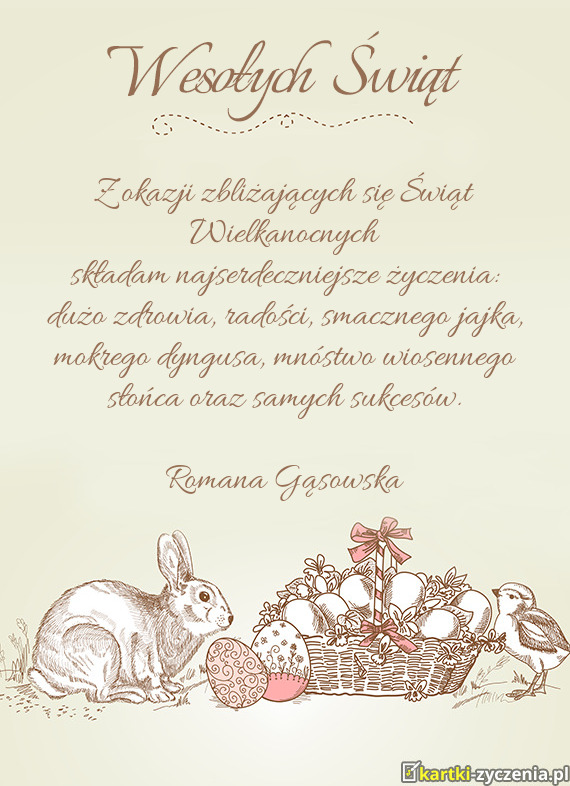 Wesołych Świąt
Z okazji zbliżających się Świąt
Wielkanocnych
składam najserdeczniejsze życzenia:
dużo zdrowia, radości, smacznego jajka,
mokrego dyngusa, mnóstwo wiosennego
słońca oraz samych sukcesów.
Romana Gąsowska
kartki-zyczenia.pl